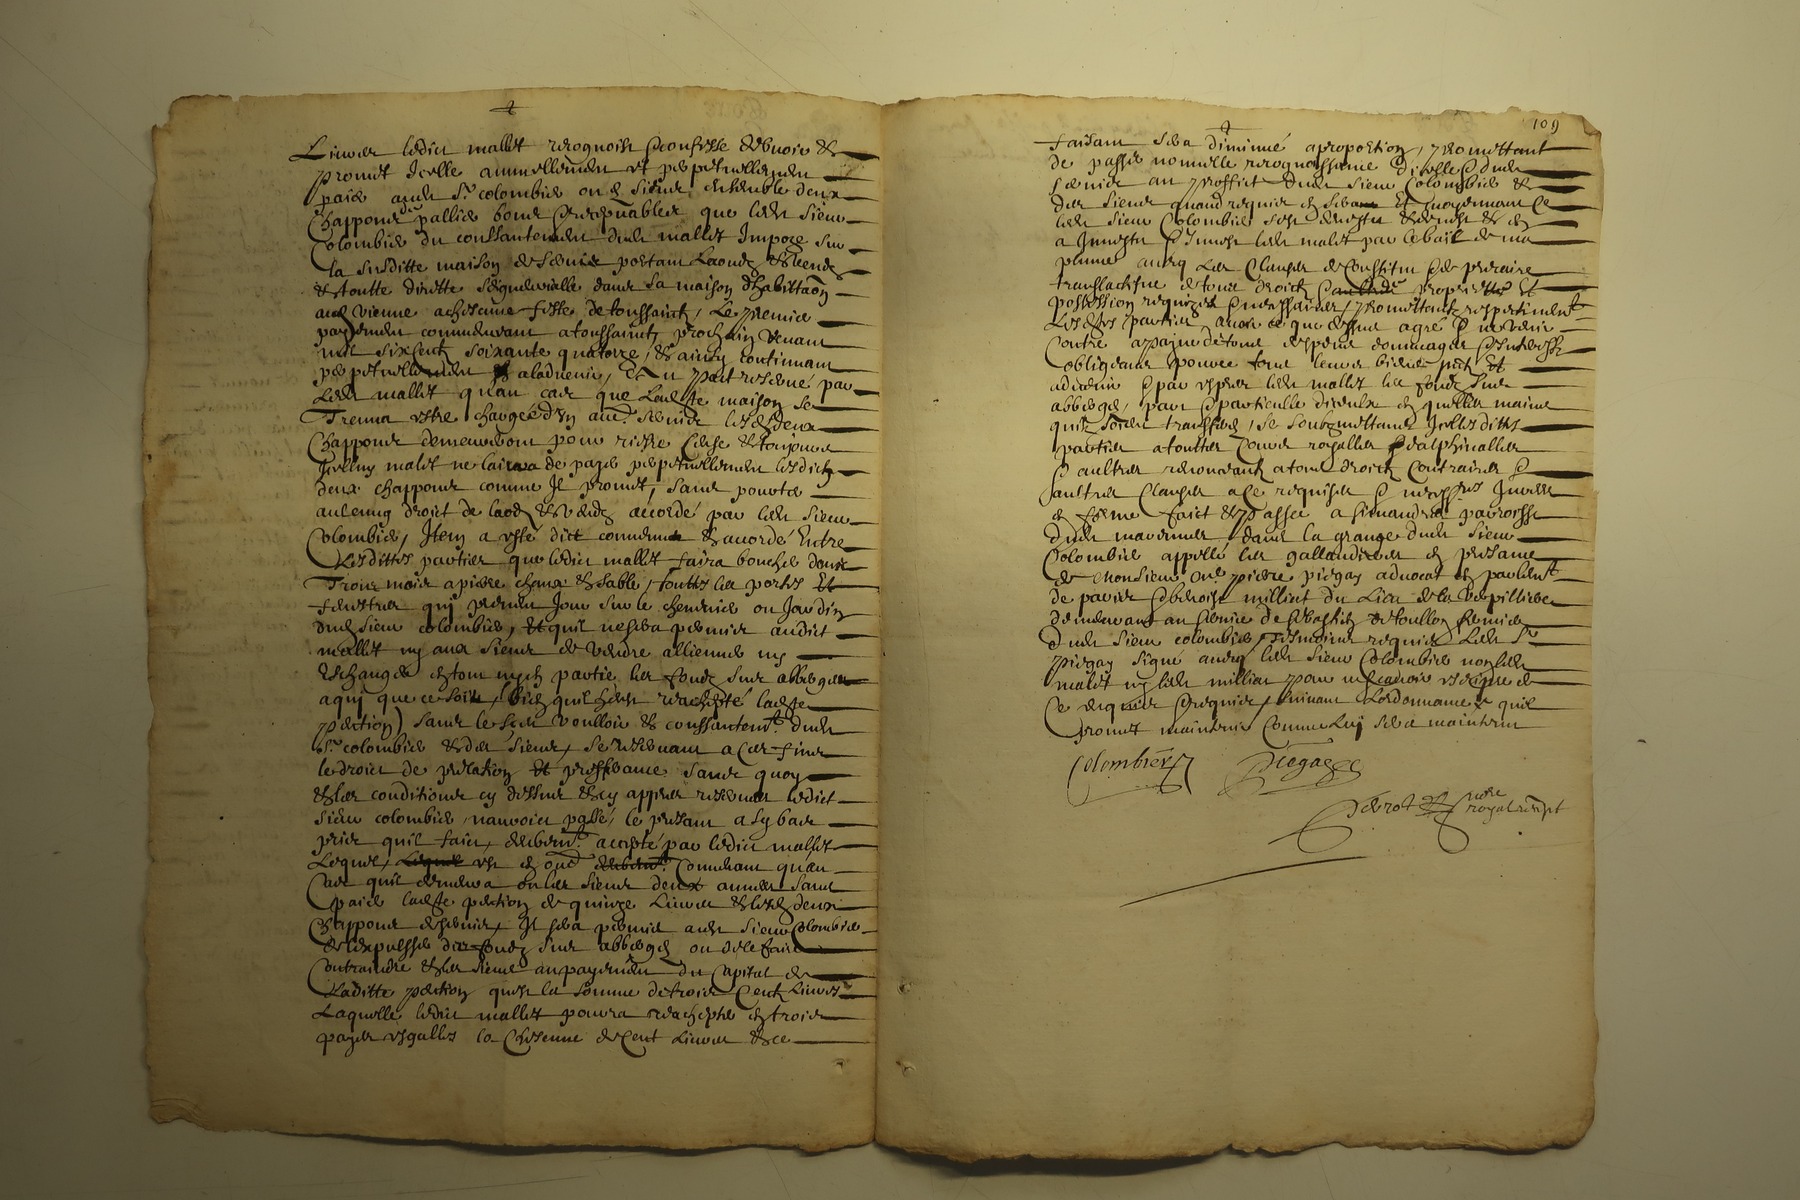 Livres ledict mallet recognoist Confesse debvoir et
promet Icelle annuellement et perpetuellement
paier audit Sr colombier ou es siens ensemble deux
Chappons de pallier bons Et recepvables que ledit sieur
Colombier du consantement dudit mallet Impoze sur
la susditte maison de service portant Laouds et vends
et toutte directte seigneurialle dans sa maison dhabittaõn
aud vienne a chescune feste de toussaincts, Le premier
payement commencant a toussaincts prochain venant
mil six cents soixante quatorze, et ainsy continuant
perpetuellement a ladvenir, Et a esté reservé par
ledit mallet quau cas que Ladte maison se
Treuva estre chargée d'un antien service lesd deux
Chappons demeureront pour riere Cense et toujours
Icelluy malet ne laissera de payer perpetuellement lesdicts
deux chappons comme Il promet, sans pourtant
aulcung droict de laods et vends accordé par ledit sieur
Colombier, Item a esté dict convenu et accordé Entre
Lesdittes parties que ledict mallet faira boucher dans
Trois mois a pierre chaux et sable, touttes les portes Et
fenestres quj prenent Jour sur le chenevier ou Jardin
dud sieur colombier, et quil ne sera permier audict
mallet ny aux siens de vendre allienner ny
Eschanger en tout ny en partie les fonds sus abbergés
a quj que ce soit, bien quil heust rachepté ladte
pention) sans le sceu voulloir et consantement dudit
Sr colombier et des siens, se reservant a ces fins
le droict de prelation et preferance sans quoy
et les conditions cy dessus et cy appres reservees ledict
sieur colombier n'auroict passé le presant a sy bas
prix quil faict, accepté par ledict mallet
Lequel, Lequel est en oud Convenant quau
Cas quil demeura ou les siens deux annees sans
paier ladte pention de quinze Livres et lesd deux
Chappons de service, Il sera permier audit sieur Colombier
de lexpulsser des fonds sus abbergés ou de le faire
Contraindre et les siens au payement du Capital de
Laditte pention quest la somme de trois Cents Livres
Laquelle ledict mallet pourra rachepter en trois
payes esgalles la Chescune de Cent Livres et ce
109
faisant sera diminué a proportion, promettant
de passer nouvelle recognoissance d'icelle Et dudit
service au proffict dudit sieur Colombier et
des siens quand requis en sera Et moyennant Ce
ledit sieur Colombier sest devestu et desmis et en
a Investu Et Invest ledit malet par le bail de ma
plume avecq Les Clauses de Constitut Et de precaire
translactifve de tous droicts proprietté Et
possession requizes Et necessaires, promettants respectivement
Lesdtes parties avoir ce que dessus a gré Et ne venir
Contre a payne de tous despens dommages Et Interests
obligeants pource tous leurs biens pnts Et
advenir Et par expres ledit mallet les fonds sus
abbergés, par Et particulle d'iceulx en quelles mains
quilz soient transferes, se soubzmettants Icelles dittes
parties a touttes Cours royalles Et dalphinalles
Et aultres renonceants a tous droicts Contraires Et
aultres Clauses a Ce requises Et necessres Jurees
en forme faict et passé a simandres parroisse
dudit mauvernes dans la grange dudit sieur
Colombier appellé les gallandieres en presance
de Monsieur Me pierre piegay advocat en parlemt
de paris Et benoist milliat du Lieu de la Verpilliere
demeurant au service de sebastien de toullon fermier
dudit sieur colombier, tesmoins requis Ledit Sr
piegay signé avecq ledit sieur Colombier non ledit
malet ny ledit milliat pour ne scavoir escripre de
Ce enquis Et requis, suivant Lordonnance quil
promet maintenir Comme Luj sera maintenu
Colombier Piegay
notre
royal recept